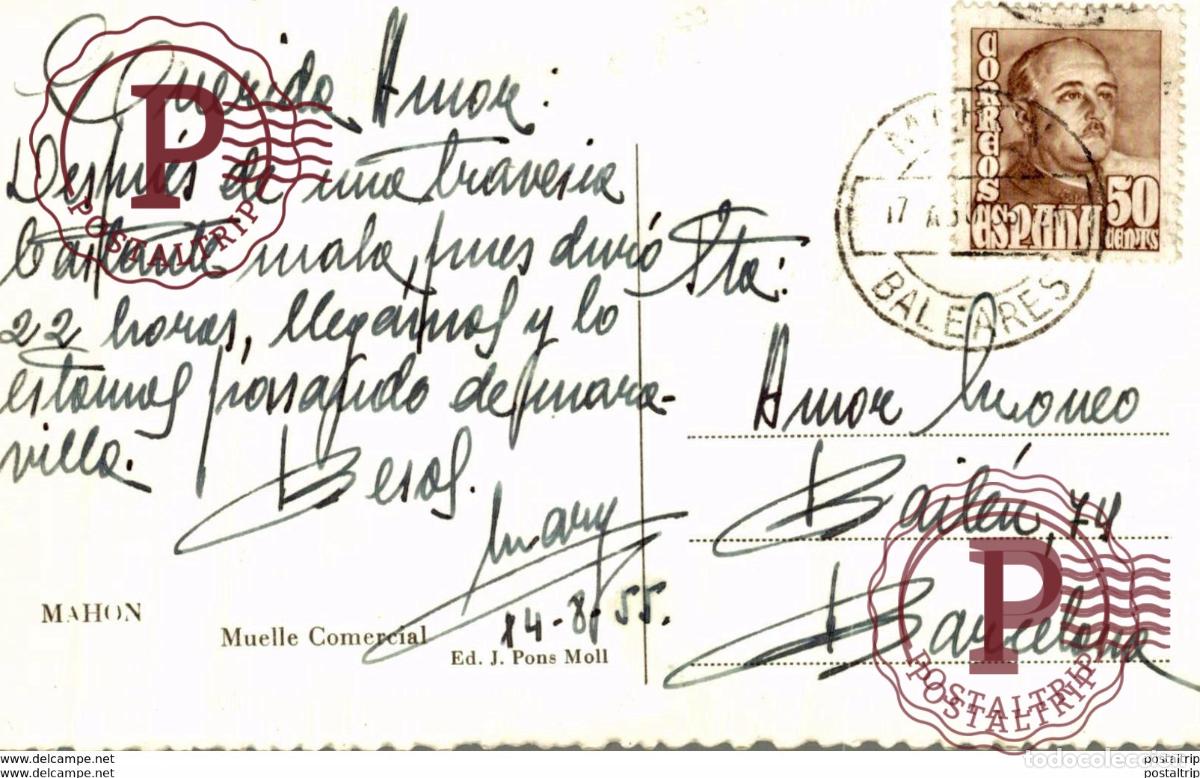 Querida Amor:
Después de una travesia
bastante mala, pues duró
22 horas, llegamos y lo
estamos pasando de mara-
villa.
Besos.
Mary
14-8-55.
MAHON
Muelle Comercial
Ed. J. Pons Moll
CORREOS
ESPAÑA
50
CENTS
17
BALEARES
Srta:
Amor Moneo
Bailén, 74
Barcelona
P
POSTALTRIP
P
POSTALTRIP
POSTALTRIP
www.bis.net
www.bis.net
todocoleccion
postaltrip
postaltrip